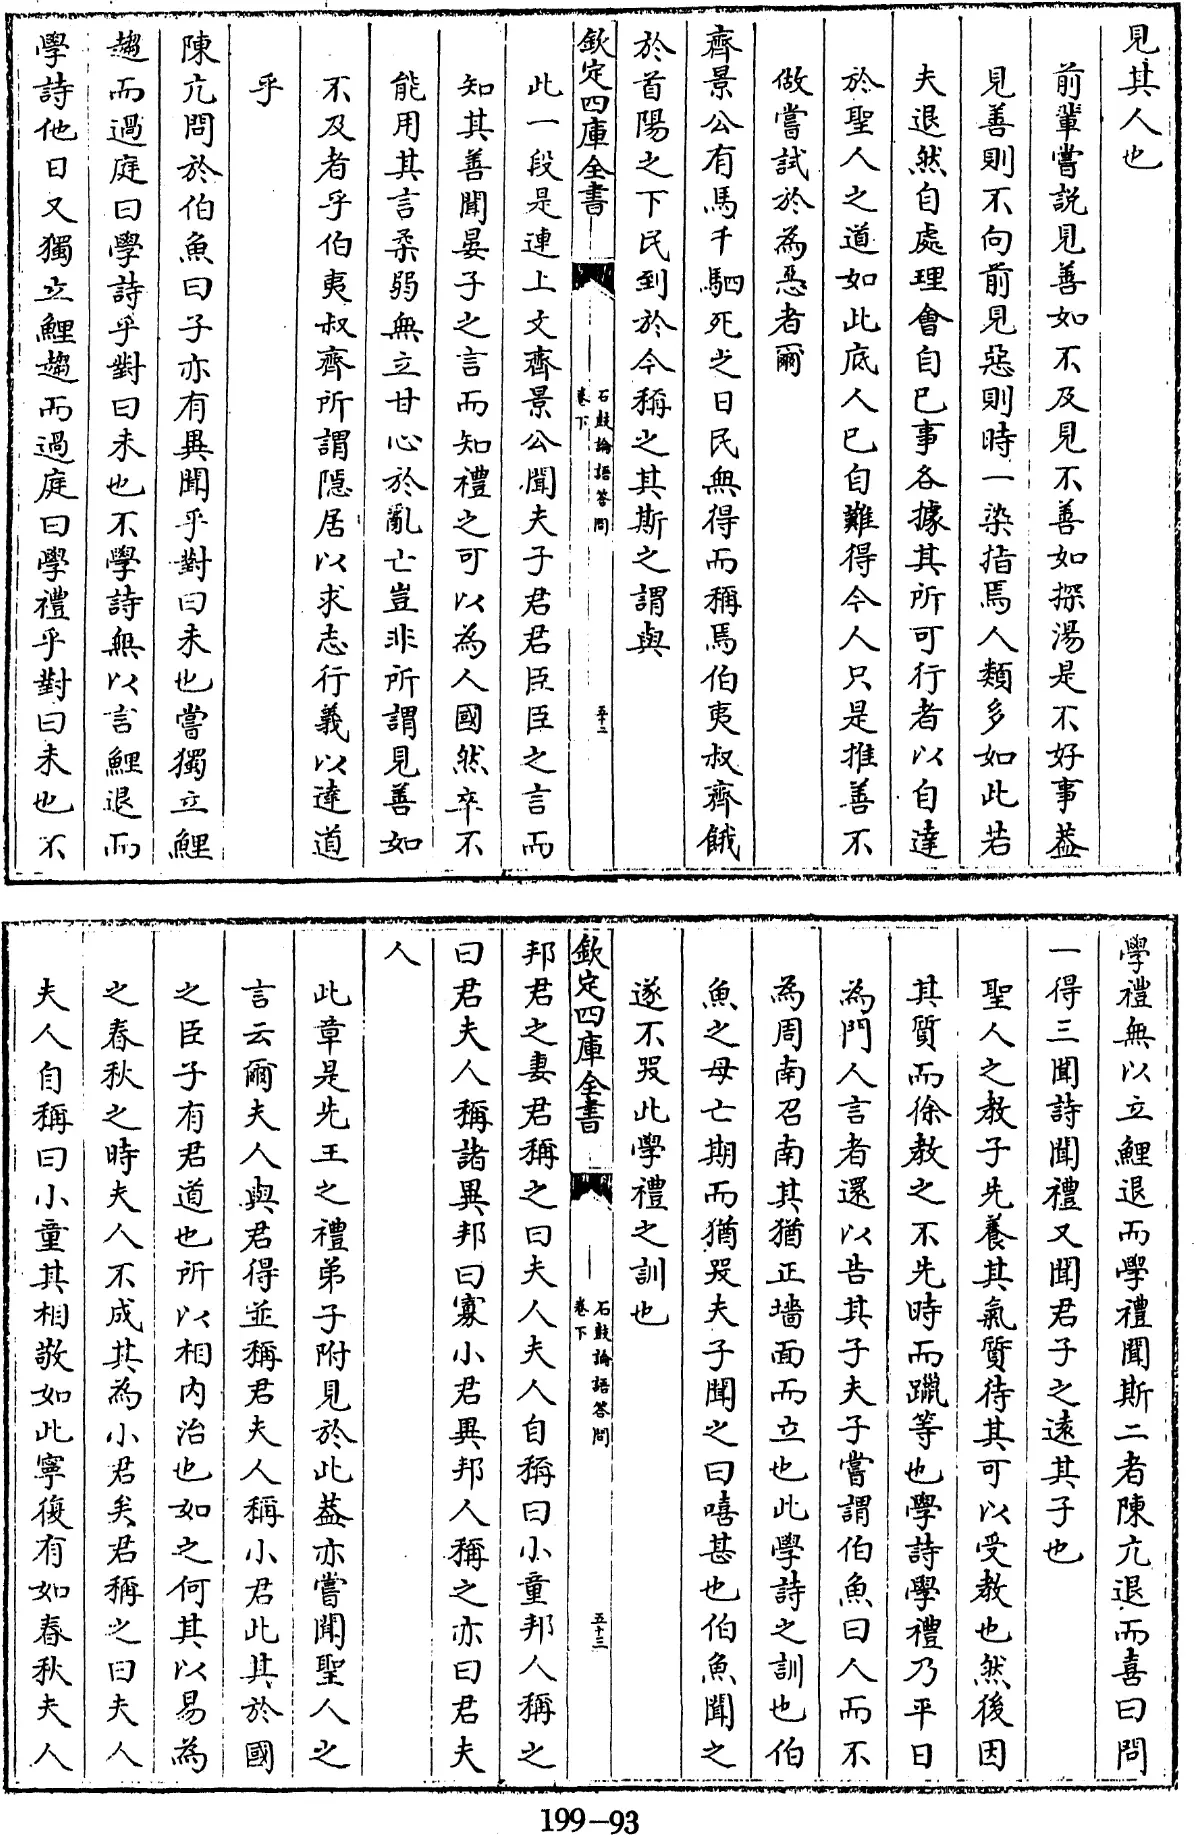 見其人也
前輩嘗説見善如不及見不善如探湯是不好事葢
見善則不向前見惡則時一染指焉人類多如此若
夫退然自處理會自已事各據其所可行者以自達
於聖人之道如此底人已自難得今人只是推善不
做嘗試於為惡者爾
齊景公有馬千駟死之日民無得而稱焉伯夷叔齊餓
於首陽之下民到於今稱之其斯之謂與
欽定四庫全書
石鼓論語答問
卷下
五十二
此一段是連上文齊景公聞夫子君君臣臣之言而
知其善聞晏子之言而知禮之可以為人國然卒不
能用其言柔弱無立甘心於亂亡豈非所謂見善如
不及者乎伯夷叔齊所謂隠居以求志行義以達道
乎
陳亢問於伯魚曰子亦有異聞乎對曰未也嘗獨立鯉
趨而過庭曰學詩乎對曰未也不學詩無以言鯉退而
學詩他日又獨立鯉趨而過庭曰學禮乎對曰未也不
學禮無以立鯉退而學禮聞斯二者陳亢退而喜曰問
一得三聞詩聞禮又聞君子之逺其子也
聖人之教子先養其氣質待其可以受教也然後因
其質而徐教之不先時而躐等也學詩學禮乃平日
為門人言者還以告其子夫子嘗謂伯魚曰人而不
為周南召南其猶正墻面而立也此學詩之訓也伯
魚之母亡期而猶哭夫子聞之曰嘻甚也伯魚聞之
遂不哭此學禮之訓也
欽定四庫全書
石鼓論語答問
卷下
五十三
邦君之妻君稱之曰夫人夫人自稱曰小童邦人稱之
曰君夫人稱諸異邦曰寡小君異邦人稱之亦曰君夫
人
此章是先王之禮弟子附見於此葢亦嘗聞聖人之
言云爾夫人與君得並稱君夫人稱小君此其於國
之臣子有君道也所以相内治也如之何其以易為
之春秋之時夫人不成其為小君矣君稱之曰夫人
夫人自稱曰小童其相敬如此寧復有如春秋夫人
199-93